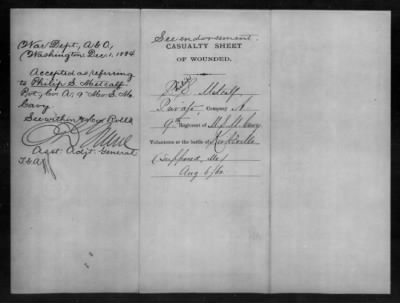 War Dept., A.G.O.,
Washington Dec. 1, 1884
Accepted as referring
to Philip S. Metcalf
Pvt, Co. A. 9" Mo. S. M.
Cavy
See within &
Asst. Adjt. General
See endorsement.
CASUALTY SHEET
OF WOUNDED.
P S Metcalf
Private, Company A
9th Regiment of M.S.M. Cavy
Volunteers at the battle of Kirksville
(Supposed, Mo)
Aug 6/62